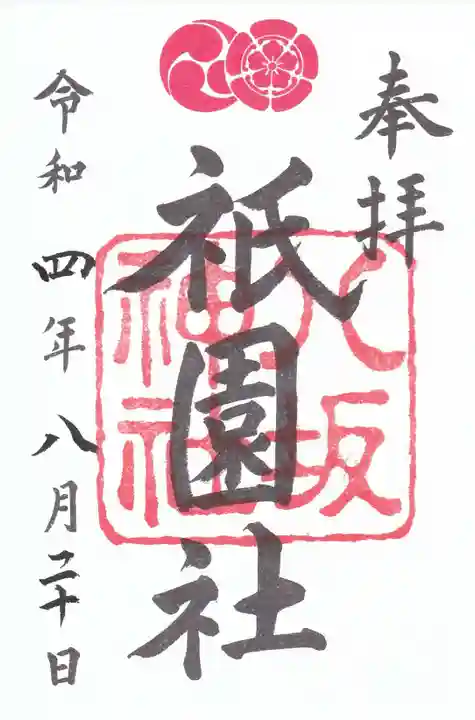 奉拝
八坂
神社
祇園社
令和四年八月二十日